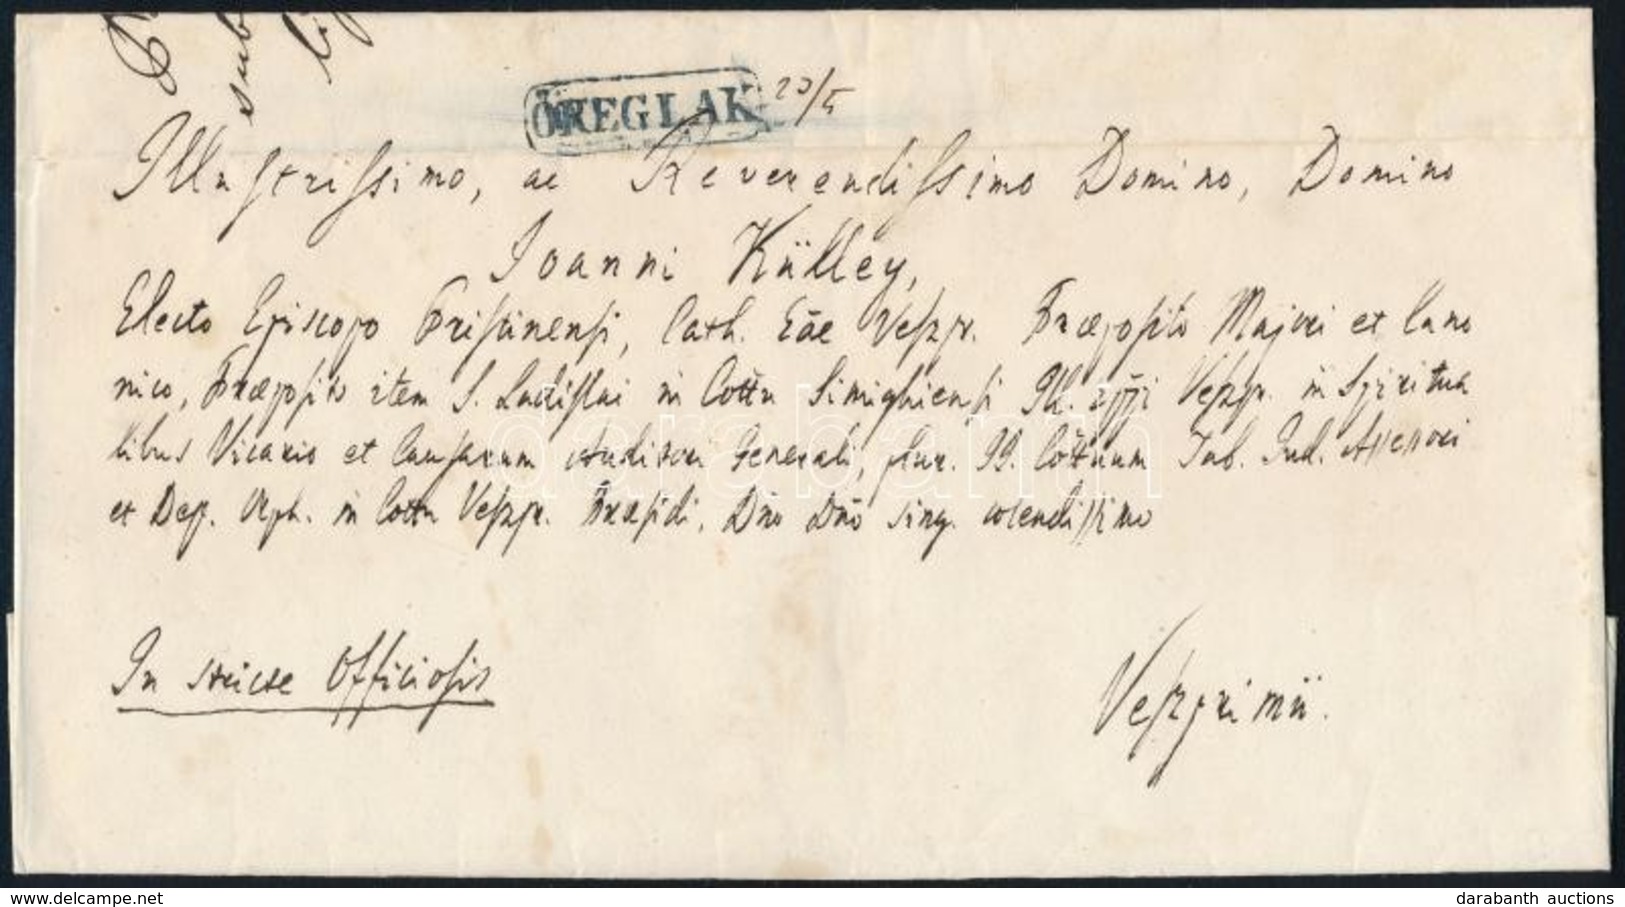 sub
ÖREGLAK 20/5
Illustrissimo, ac Reverendissimo Domino, Domino
Joanni Külley,
Electo Episcopo Pristinensi, Cath. Eãe Veszpr. Præposito Majori et Cano
nico, Præposito item S. Ladislai in Cottu Simighiensi Ill. Eppi Veszpr. in Spiritua
libus Vicario et Causarum Auditori Generali, plur. II. Cottuum Tab. Jud. Assessori
et Dep. Orph. in Cottu Veszpr. Præsidi, Dno Dno sing. colendissimo
In stricte Officiosis
Veszprimii.
darabanth
darabanth auctions